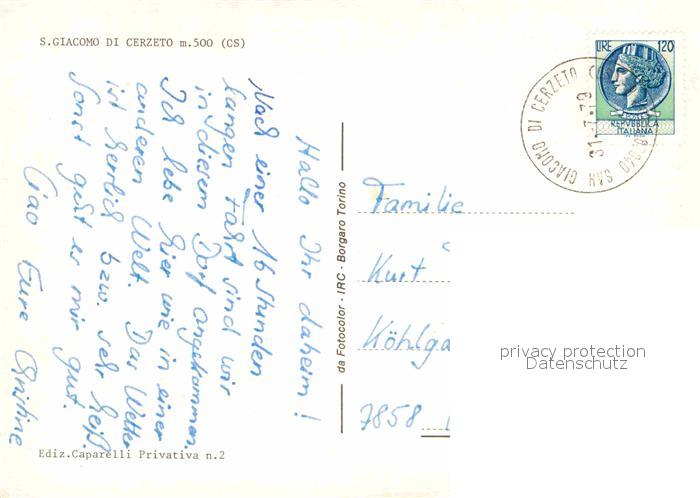 S.GIACOMO DI CERZETO m.500 (CS)
Hallo Ihr daheim!
Nach einer 16 stunden
langen Fahrt sind wir
in diesem Dorf angekommen.
Ich lebe hier wie in einer
anderen Welt. Das Wetter
ist herlich bzw. sehr heiß.
Sonst geht es mir gut.
Ciao Eure Christine
Ediz.Caparelli Privativa n.2
da Fotocolor - IRC - Borgaro Torino
LIRE 120
REPVBBLICA
ITALIANA
SAN GIACOMO DI CERZETO
31-7-79
Familie
Kurt
Köhlga
7858
privacy protection
Datenschutz